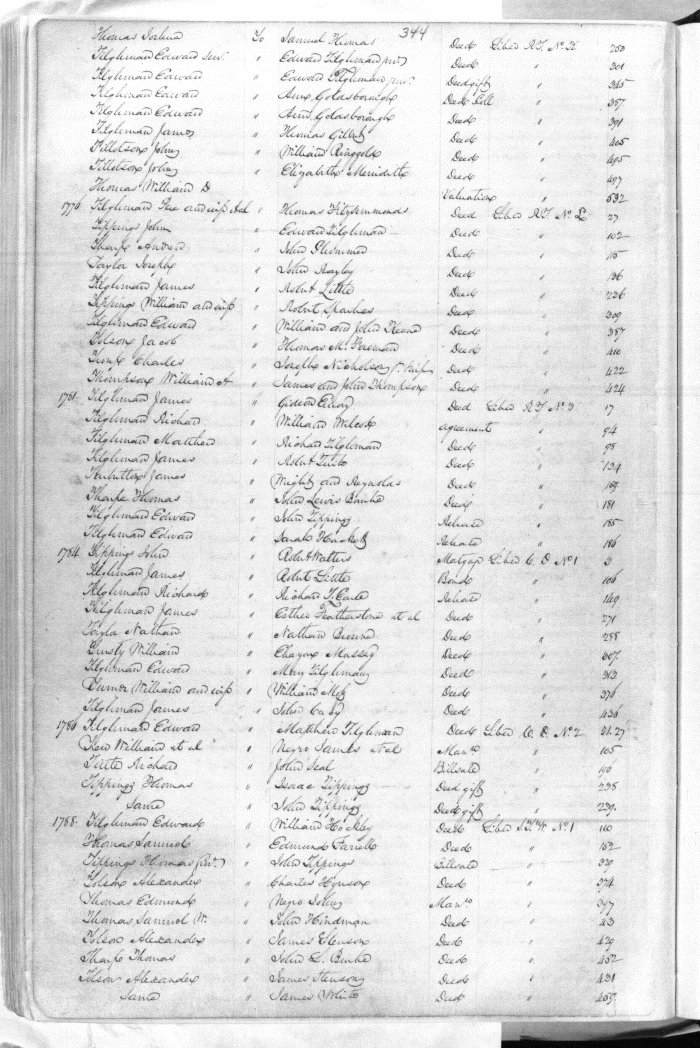 344
Thomas Joshua To Samuel Thomas Deed Liber R.T. No. H. 250
Tilghman Edward senr. " Edward Tilghman junr. Deed " 301
Tilghman Edward " Edward Tilghman junr. Deed gift " 345
Tilghman Edward " Ann Goldsborough Deed Poll " 387
Tilghman Edward " Ann Goldsborough Deed " 391
Tilghman James " Gilbert Deed " 405
Tilletson John " William Ringgold Deed " 495
Tilletson John " Elizabeth Merideth Deed " 497
Thomas William D Valuation " 532
1776 Tilghman and wife " Thomas Fitzsimmonds Deed Liber R.T. No. L 27
Tippings John " Edward Tilghman Deed " 102
Tharpe Andrew " John Plummer Deed " 115
Taylor Joseph " John Rayley Deed " 136
Tilghman James " Robert Little Deed " 236
Tippings William and wife " Robert Sparkes Deed " 309
Tilghman Edward " William and John Keene Deed " 387
Tolson Jacob " Thomas M. Foreman Deed " 410
Charles " Joseph Nicholson Deed " 422
Thompson William A " James and John Thompson Deed " 424
1781 Tilghman James " Gideon Emory Deed Liber R.T. No. 17
Tilghman Richard " William Wilcox Agreement " 94
Tilghman Matthew " Richard Tilghman Deed " 98
Tilghman James " Robert Deed " 134
James " Wright and Reynolds Deed " 169
Tharpe Thomas " John Lewis Burke Deed " 181
Tilghman Edward " John Tipping Release " 185
Tilghman Edward " Sarah Hackett Release " 186
1784 Tippings John " Robt. Walters Mortgage Liber C. D. No 1 3
Tilghman James " Robert Little Bond " 106
Tilghman Richard " Richard T. Earle Release " 149
Tilghman James " Esther Featherstone et al Deed " 271
Nathan " Nathan Browne Deed " 288
William " Massey Deed " 307
Tilghman Edward " Mary Tilghman Deed " 313
Turner William and wife " William Deed " 376
Tilghman James " John Deed " 436
1786 Tilghman Edward " Matthew Tilghman Deed Liber C. D. No. 2 21.27
William et al " Negro James et al Mann. " 105
Tuite Richard " John Seal Billsale " 190
Tippings Thomas " Isaac Tippings Deed gift " 238
Same " John Tippings Deed gift " 239
1788 Tilghman Edward " William Hackley Deed Liber S.T.W. No 1 110
Thomas Samuel " Edmund Farrell Deed " 152
Tippings Thomas (Sr.) " John Tippings Billsale " 339
Tolson Alexander " Charles Hynson Deed " 374
Thomas Edmund " Negro John Mann. " 397
Thomas Samuel W. " John Hindman Deed " 43
Tolson Alexander " James Deed " 429
Tharpe Thomas " John L. Burke Deed " 452
Tolson Alexander " James Deed " 431
Same " James White Deed " 459